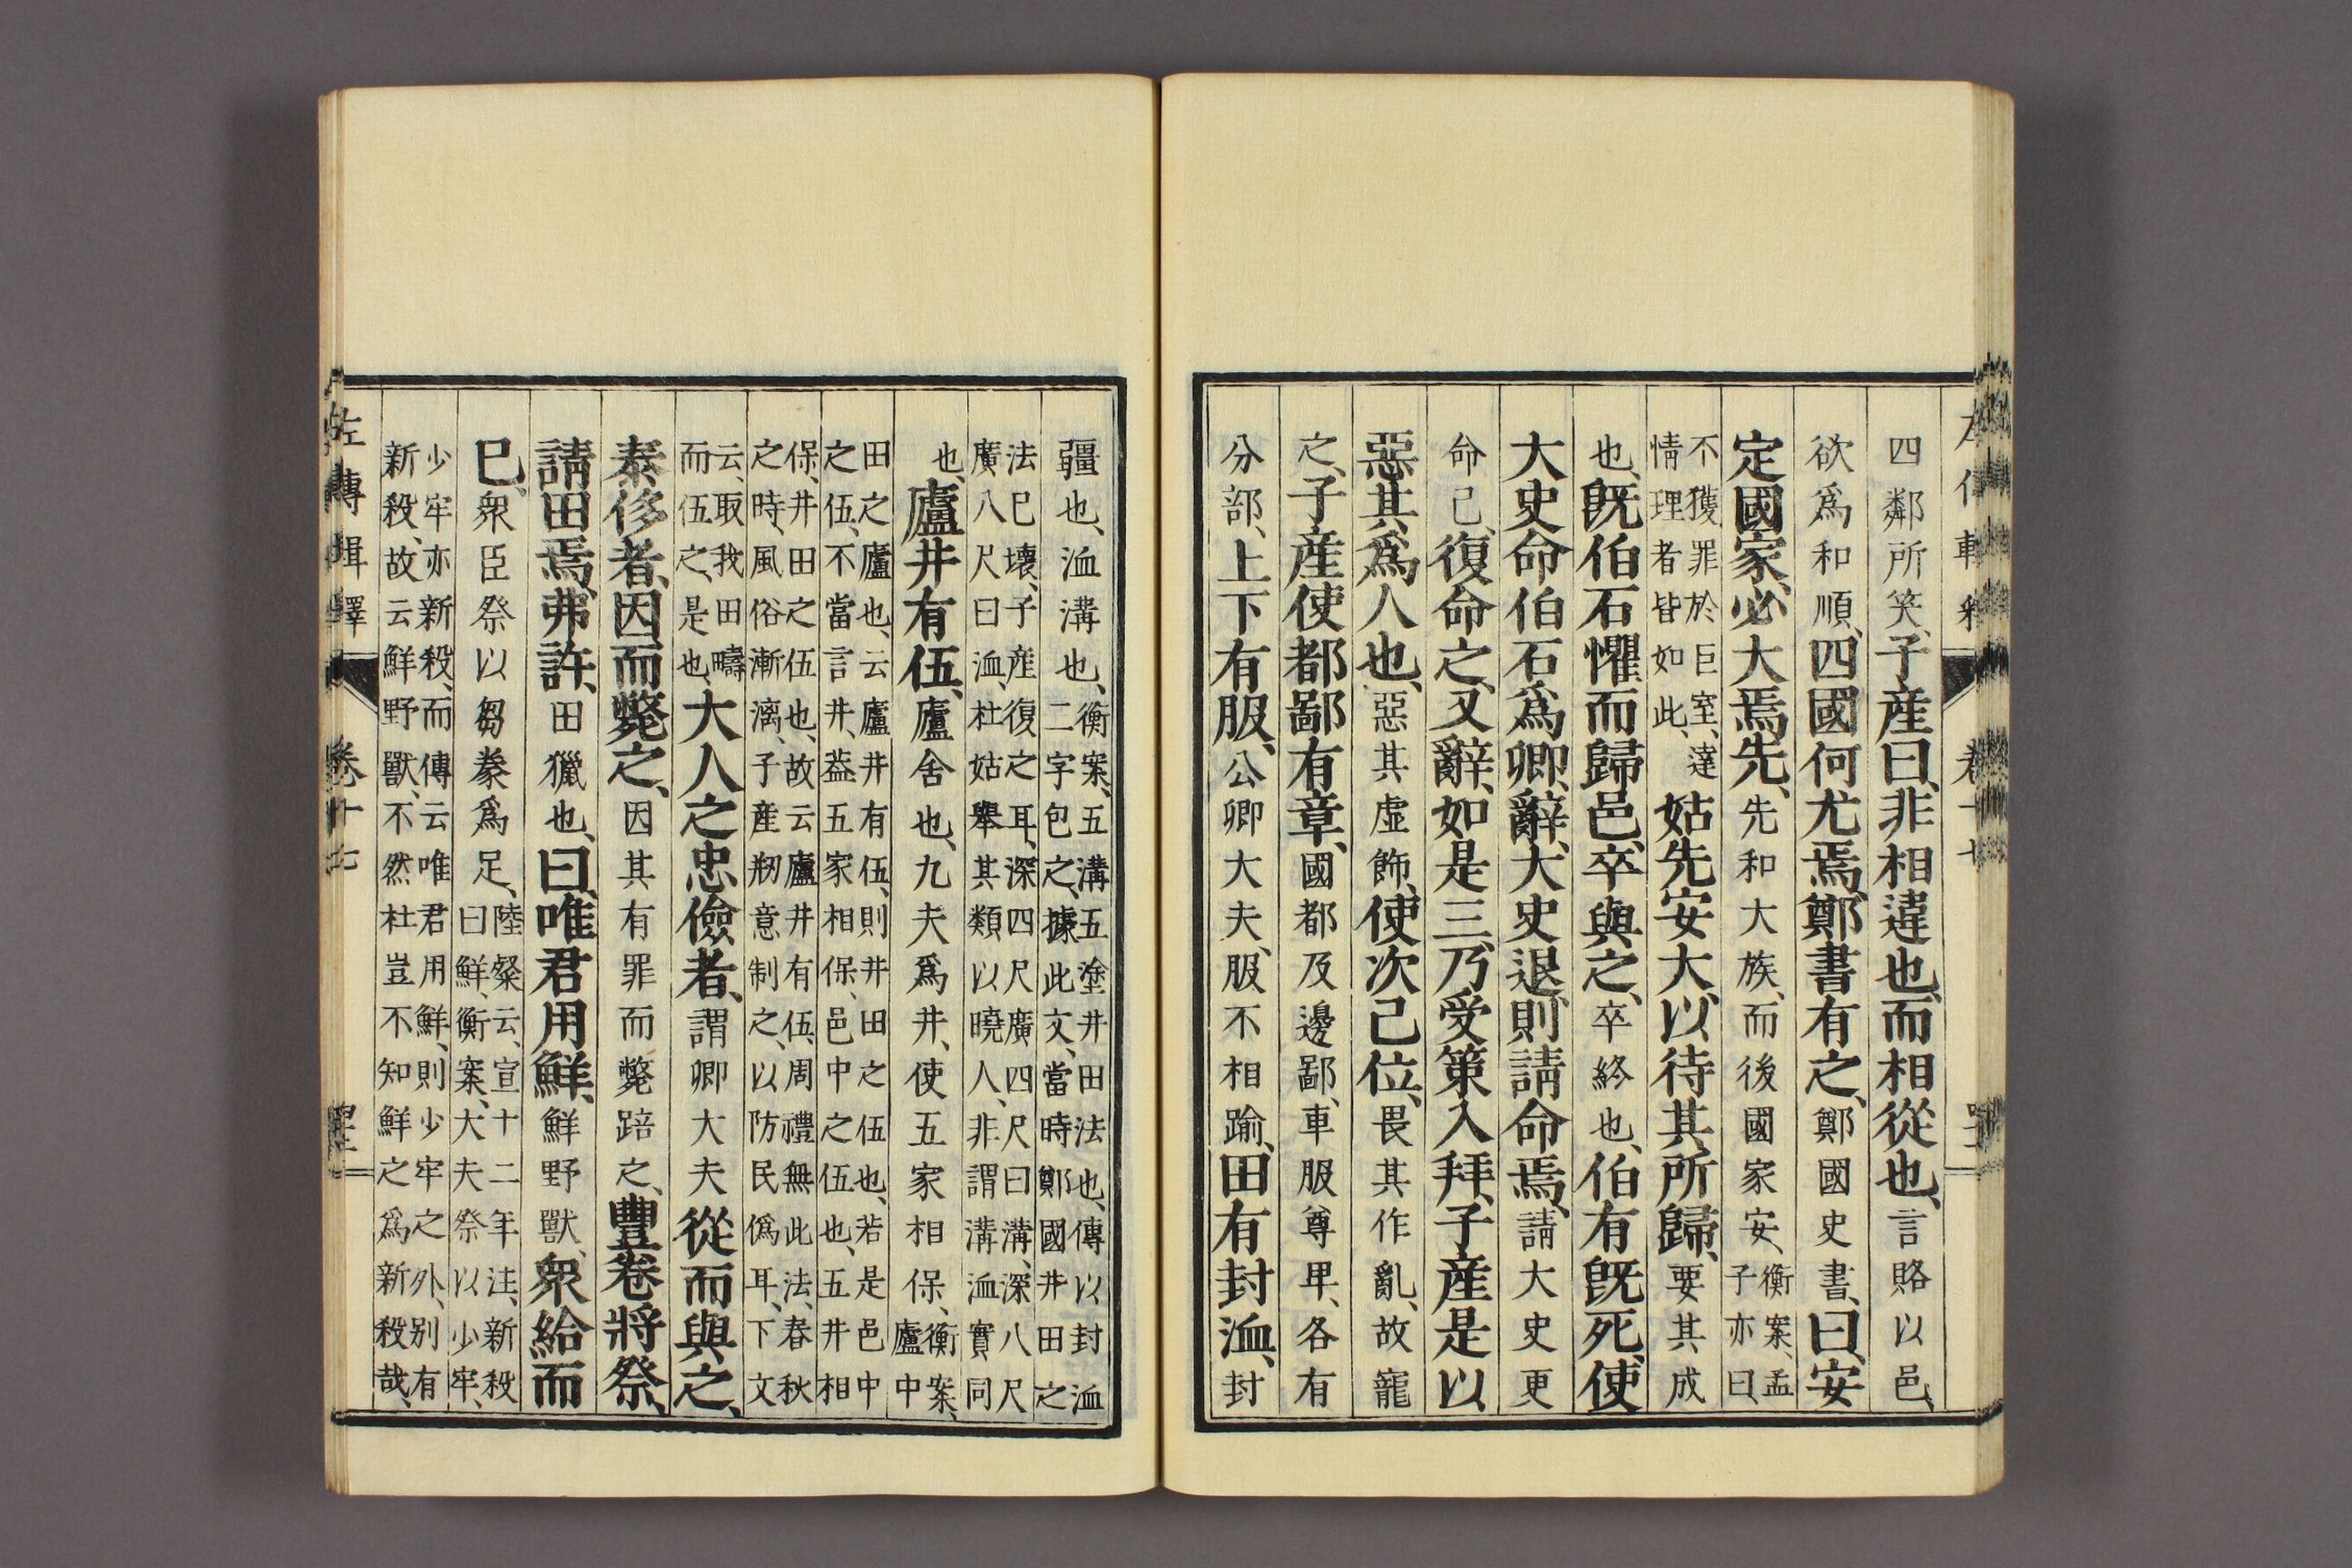 四鄰所笑、子産曰、非相違也、而相從也、言賂以邑、
欲爲和順、四國何尤焉、鄭書有之、鄭國史書、曰、安
定國家、必大焉先、先和大族、而後國家安、衡案、孟子亦曰、
不獲罪於巨室、達情理者皆如此、姑先安大、以待其所歸、要其成
也、既伯石懼而歸邑、卒與之、卒終也、伯有既死、使
大史命伯石爲卿、辭、大史退、則請命焉、請大史更
命己、復命之、又辭、如是三、乃受策入拜、子産是以
惡其爲人也、惡其虛飾、使次己位、畏其作亂、故寵
之、子産使都鄙有章、國都及邊鄙、車服尊卑、各有
分部、上下有服、公卿大夫、服不相踰、田有封洫、封
疆也、洫溝也、衡案、五溝五塗井田法也、傳以封洫二字包之、據此文、當時鄭國井田之
法已壞、子産復之耳、深四尺廣四尺曰溝、深八尺廣八尺曰洫、杜姑舉其類以曉人、非謂溝洫實同
也、廬井有伍、廬舍也、九夫爲井、使五家相保、衡案、廬中
田之廬也、云廬井有伍、則井田之伍也、若是邑中之伍、不當言井、葢五家相保、邑中之伍也、五井相
保、井田之伍也、故云廬井有伍、周禮無此法、春秋之時、風俗漸漓、子産剏意制之、以防民僞耳、下文
云、取我田疇而伍之、是也、大人之忠儉者、謂卿大夫從而與之、
泰侈者、因而斃之、因其有罪而斃踣之、豐卷將祭、
請田焉、弗許、田獵也、曰、唯君用鮮、鮮野獸、衆給而
已、衆臣祭以芻豢爲足、陸粲云、宣十二年注、新殺曰鮮、衡案、大夫祭以少牢、
少牢亦新殺、而傳云唯君用鮮、則少牢之外、别有新殺、故云鮮野獸、不然杜豈不知鮮之爲新殺哉、
左傳輯釋 卷十七